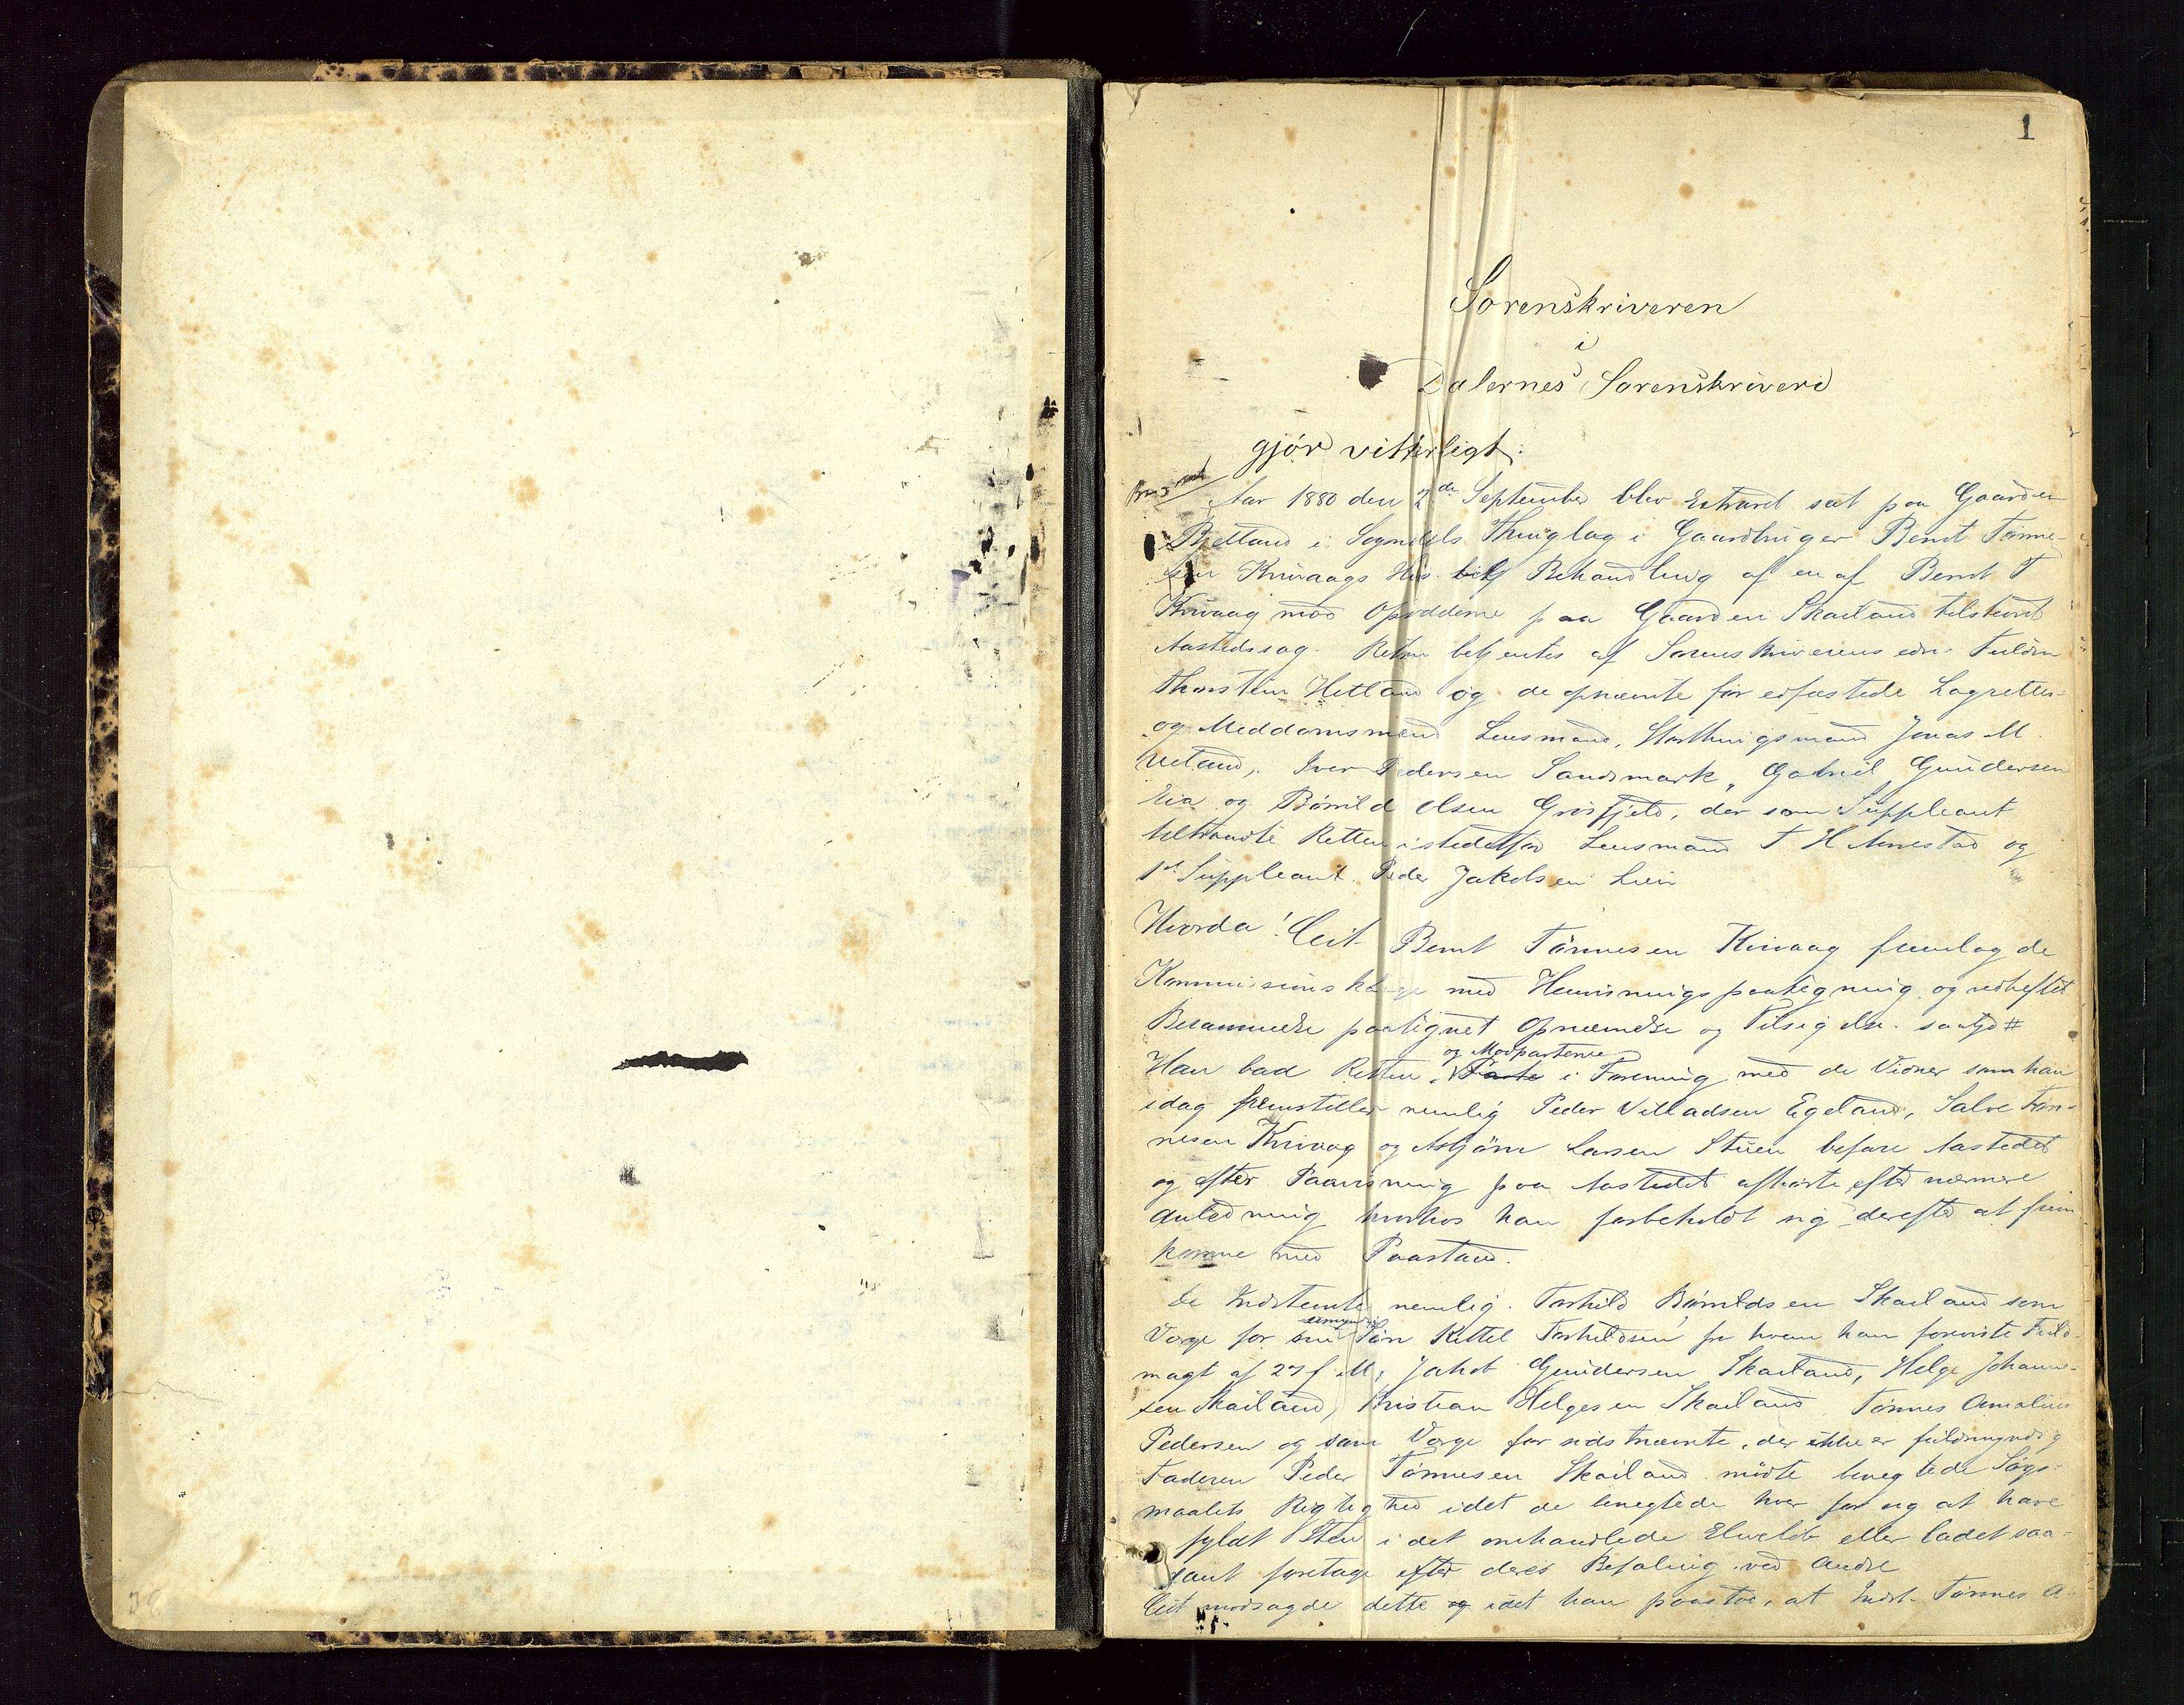 1
Sorenskriveren
i
Dalernes Sorenskriveri
gjør vitterligt:
Aar 1880 den 2de September blev Extraret sat paa Gaarden
Bjelland i Sogndals Thinglag i Gaardbruger Bernt Tønne-
sen Knivaags Hus til Behandling af en af Bernt T
Knivaag mod Opsidderne paa Gaarden Skailand tilstevnt
Aastedssag. Retten betjentes af Sorenskriverens edsv. Fuldm
Thorstein Hetland og de opnæmte før edfæstede Lagrettes-
og Meddomsmænd Lensmand, Storthingsmand Jonas M.
Ueland, Iver Pedersen Sandsmark, Gabriel Gundersen
Eia og Børild Olsen Grøsfjeld, der som Suppleant
tiltraadte Retten istedetfor Lensmand T H Aarrestad og
1ste Suppleant Peder Jakobsen Lien
Hvorda! Cit. Bernt Tønnesen Knivaag fremlagde
Kommissionsklage med Henvisningspaategning og vedheftet
Berammelse paategnet Opnæmelse og Tilsigelse. saalyd #
Han bad Retten og Modparterne i Forening med de Vidner som han
idag fremstiller nemlig Peder Villadsen Egeland, Salve Tøn-
nesen Knivaag og Asbjørn Larsen Stuen befare Aastedet
og efter Paavisning paa Aastedet afhørte efter nærmere
Anledning hvorhos han forbeholdt sig derefter at frem
komme med Paastand.
De Indstevnte nemlig. Torkild Børildsen Skailand som
Værge for sin umyn Søn Kittel Torkildsen fra hvem han foreviste Fuld-
magt af 27 f. M, Jakob Gundersen Skailand, Helge Johanne-
sen Skailand, Kristian Helgesen Skailand, Tønnes Amalius
Pedersen og som Værge for sidstnæmte, der ikke er fuldmyndig
Faderen Peder Tønnesen Skailand mødte benegtede Søgs-
maalets Rigtighed idet de benegtede hver for sig at have
fyldt Sten i det omhandlede Elveløb eller ladet saa-
dant foretage efter deres Befaling ved Andre
Cit modsagde dette og idet han paastod, at Indst. Tønnes A-